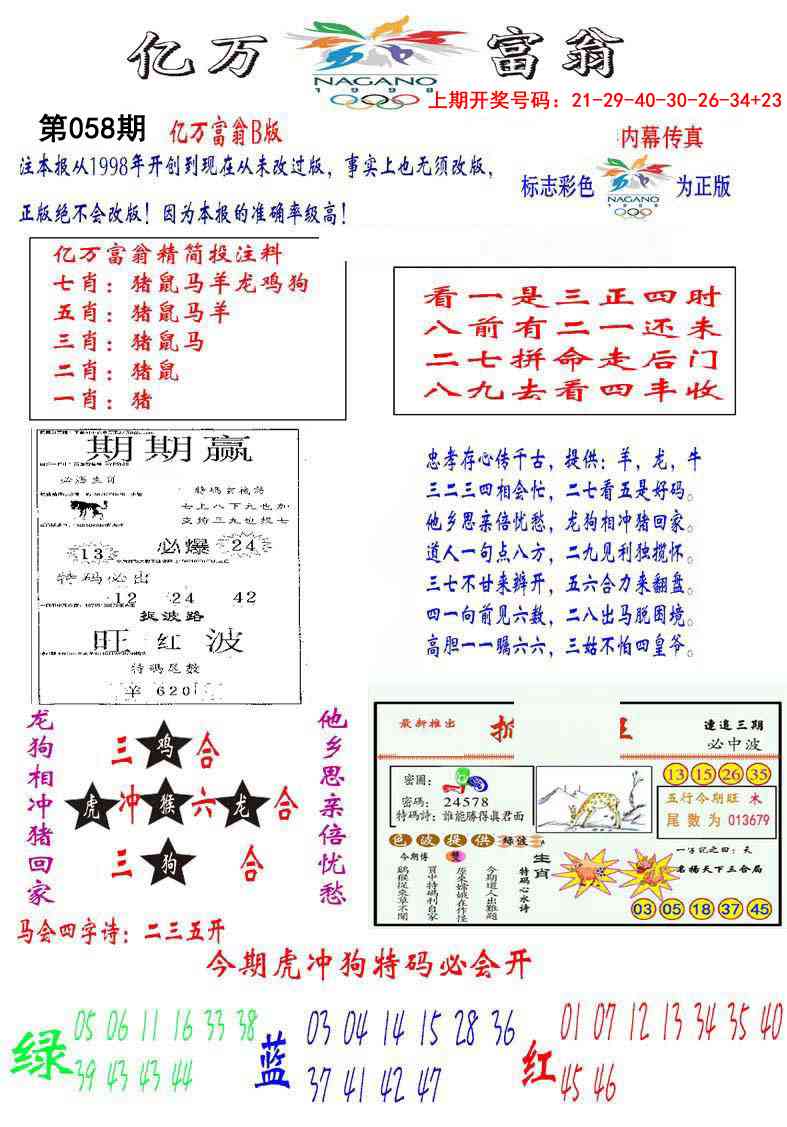 亿万富翁
NAGANO
1998
上期开奖号码：21-29-40-30-26-34+23
第058期
亿万富翁B版
内幕传真
注本报从1998年开创到现在从未改过版，事实上也无须改版，
标志彩色
NAGANO
1998
为正版
正版绝不会改版！因为本报的准确率级高！
亿万富翁精简投注料
七肖：猪鼠马羊龙鸡狗
五肖：猪鼠马羊
三肖：猪鼠马
二肖：猪鼠
一肖：猪
看一是三正四时
八前有二一还未
二七拼命走后门
八九去看四丰收
期期赢
七上八下九也加
13
必爆
24
特码必出
12 24 42
扳波路
旺红波
特碼尾数
羊 620
忠孝存心传千古，提供：羊，龙，牛
三二三四相会忙，二七看五是好码。
他乡思亲倍忧愁，龙狗相冲猪回家。
道人一句点八方，二九见利独揽怀。
三七不甘来辨开，五六合力来翻盘。
四一向前见六数，二八出马脱困境。
高胆一一瞩六六，三姑不怕四皇爷。
龙狗相冲猪回家
三鸡合
虎冲猴六龙合
三狗合
他乡思亲倍忧愁
马会四字诗：二三五开
最新推出
連追三期
必中波
密圖：
密碼：24578
特碼詩：誰能勝得真君面
13 15 26 35
五行今期旺 木
尾數为 013679
色波提供
綠波
今期博
雙
生肖
特码心水诗
一字记之曰：天
名扬天下三合局
03 05 18 37 45
今期虎冲狗特码必会开
绿
05 06 11 16 33 38
39 43 43 44
蓝
03 04 14 15 28 36
37 41 42 47
红
01 07 12 13 34 35 40
45 46